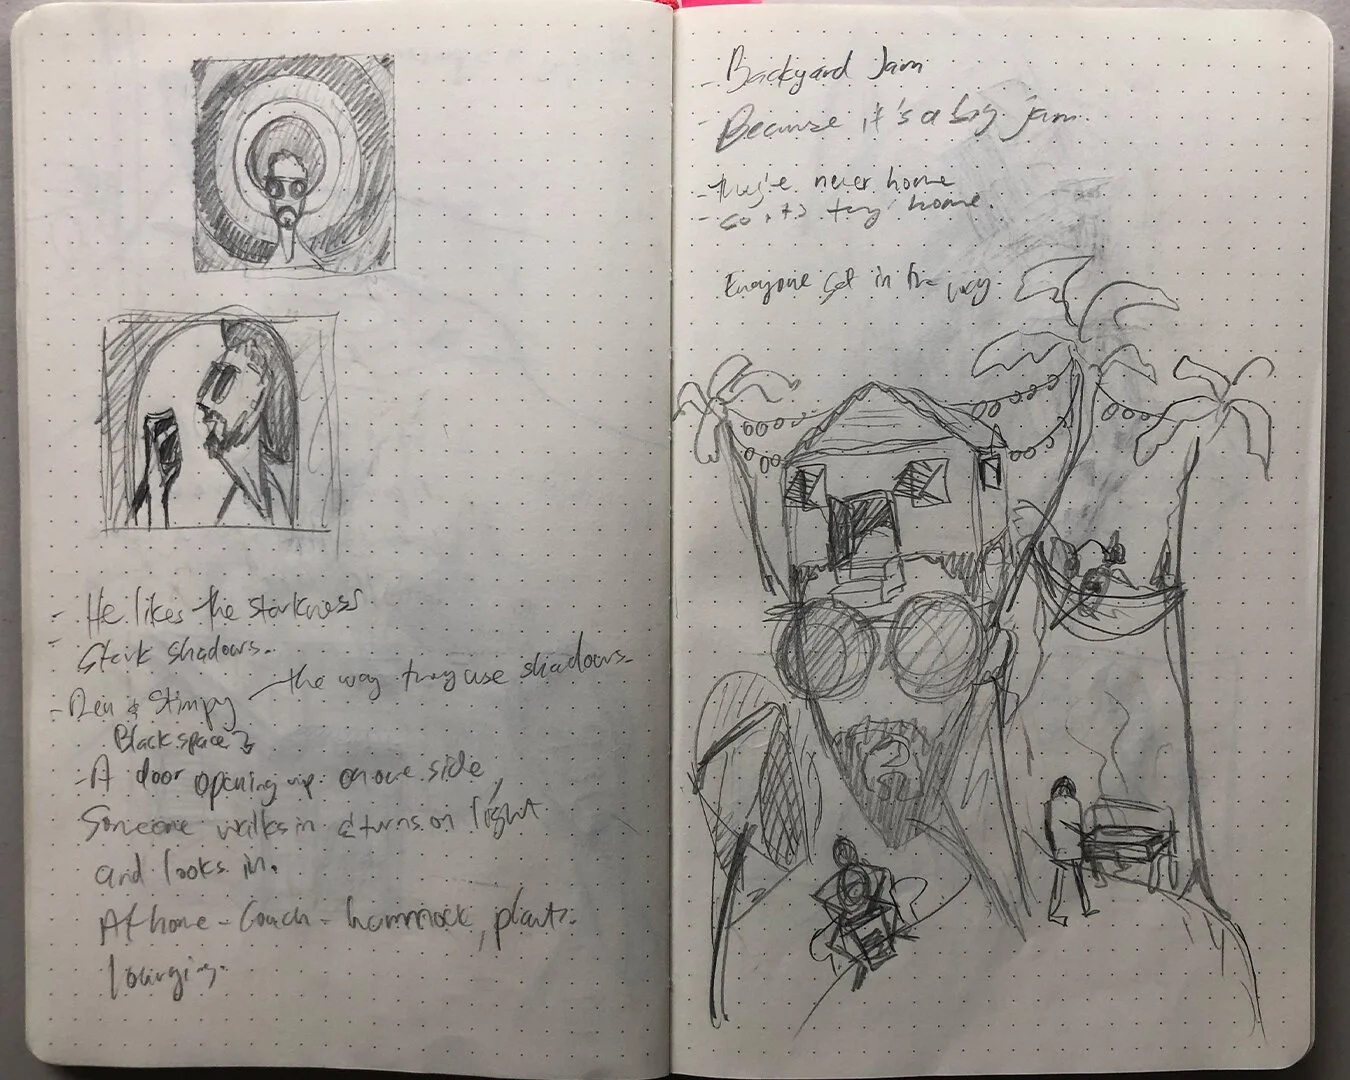 - He likes the starkness
- Stark shadows.
- Ren & Stimpy - the way they use shadows.
Black space?
- A door opening up on one side,
Someone walks in & turns on light
and looks in.
At home - Couch - hammock, plants
lounging.
- Backyard Jam
- Because it's a big jam.
- they're never home
- so it's home.
Everyone get in the way.